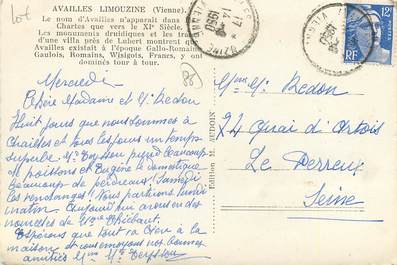 Lot
AVAILLES LIMOUZINE (Vienne).
Le nom d'Availles n'apparait dans les
Chartes que vers le XIe Siècle.
Les monuments druidiques et les traces
d'une ville près de Lubert montrent qu'
Availles existait à l'époque Gallo-Romaine
Gaulois, Romains, Wisigots, Francs, y ont
dominés tour à tour.
Mercredi
Chère Madame et Mr Redon
Huit jours que nous sommes à
Availles et tous les jours un temps
superbe Mr pêche beaucoup
de poissons et Eugène le domestique
beaucoup de perdreaux! Samedi
les vendanges! Nous partirons lundi
matin Aujourd'hui
nouvelles de Mme Thiébaut.
Espérons que tout va bien à la
maison et vous envoyons nos bonnes
amitiés Mme Mr
Edition M. AUDOIN
12F
RF
Mme Mr Redon
22 Quai d'Artois
Le Perreux
Seine